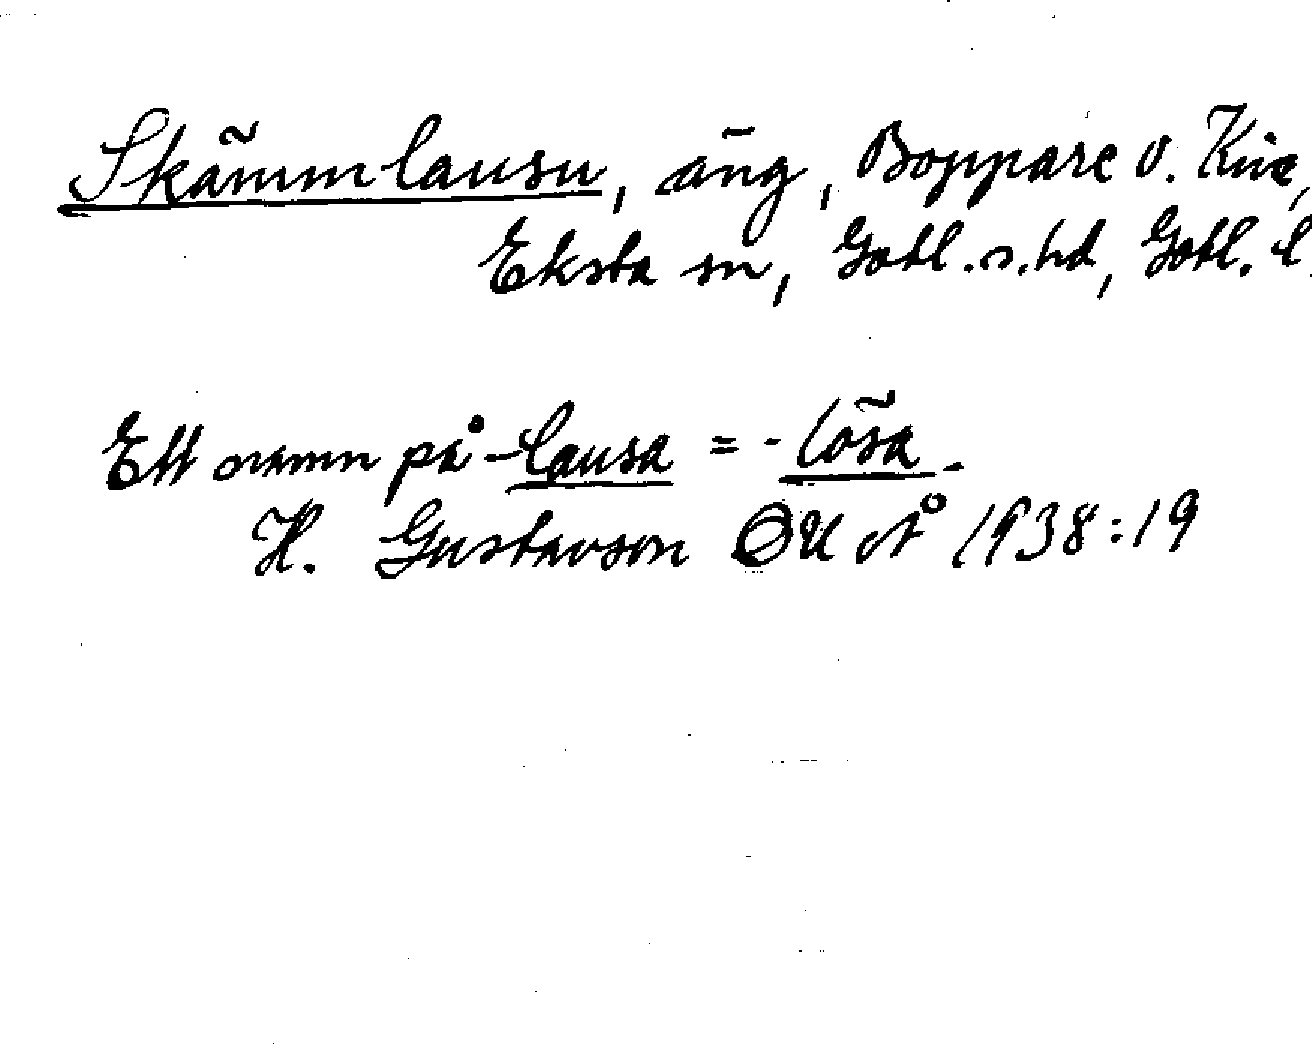 Skämmlausu, äng, Boppare o. Kive,
Eksta sn, Gotl. s. hd, Gotl. l.
Ett namn på -lausa = -lösa.
H. Gustavson OUÅ 1938:19